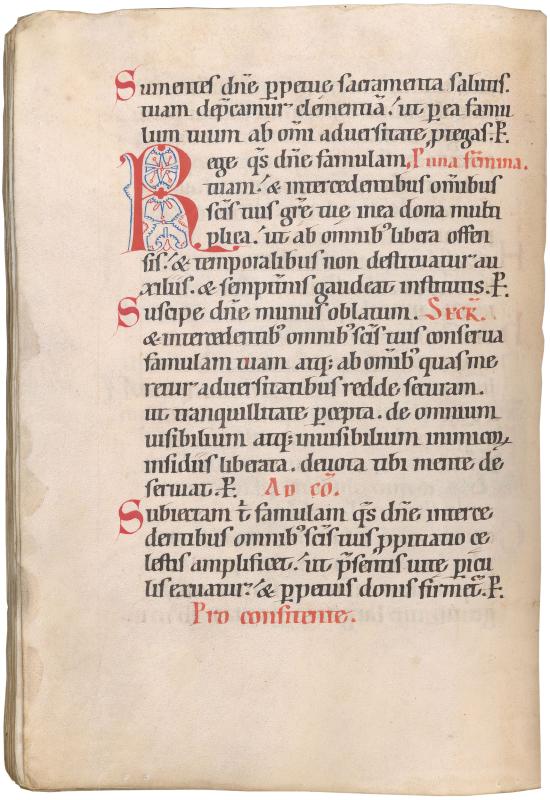 Sumentes dn̄e p̱petue sacramenta salutis.
tuam dep̄camur clementiā. ut p̱ ea famu
lum tuum ab om̄i aduersitate ꝓtegas. P̱.
Rege q̄s dn̄e famulam, P̱ una femina.
tuam. & intercedentibus om̄ibus
scīs tuis grē tue in ea dona multi
plica. ut ab omnibꝰ libera offen
sis. & temporalibus non destituatur au
xiliis. & sempit̄nis gaudeat institutis. P̱.
Suscipe dn̄e munus oblatum. Secr̄.
& intercedentibꝰ omnibꝰ scīs tuis conserua
famulam tuam atq; ab om̄ibꝰ quas me
retur aduersitatibus redde securam.
ut tranquillitate p̱cepta. de omnium
uisibilium atq; inuisibilium inimicoꝝ
insidiis liberata. deuota tibi mente de
seruiat. P̱. Ad cō.
Subiectam t̄ famulam q̄s dn̄e interce
dentibus omnibꝰ scīs tuis ꝓpitiatio ce
lestis amplificet. ut p̄sentis uite p̱icu
lis exuatur. & p̱petuis donis firmet᷑. P̱.
Pro confitente.